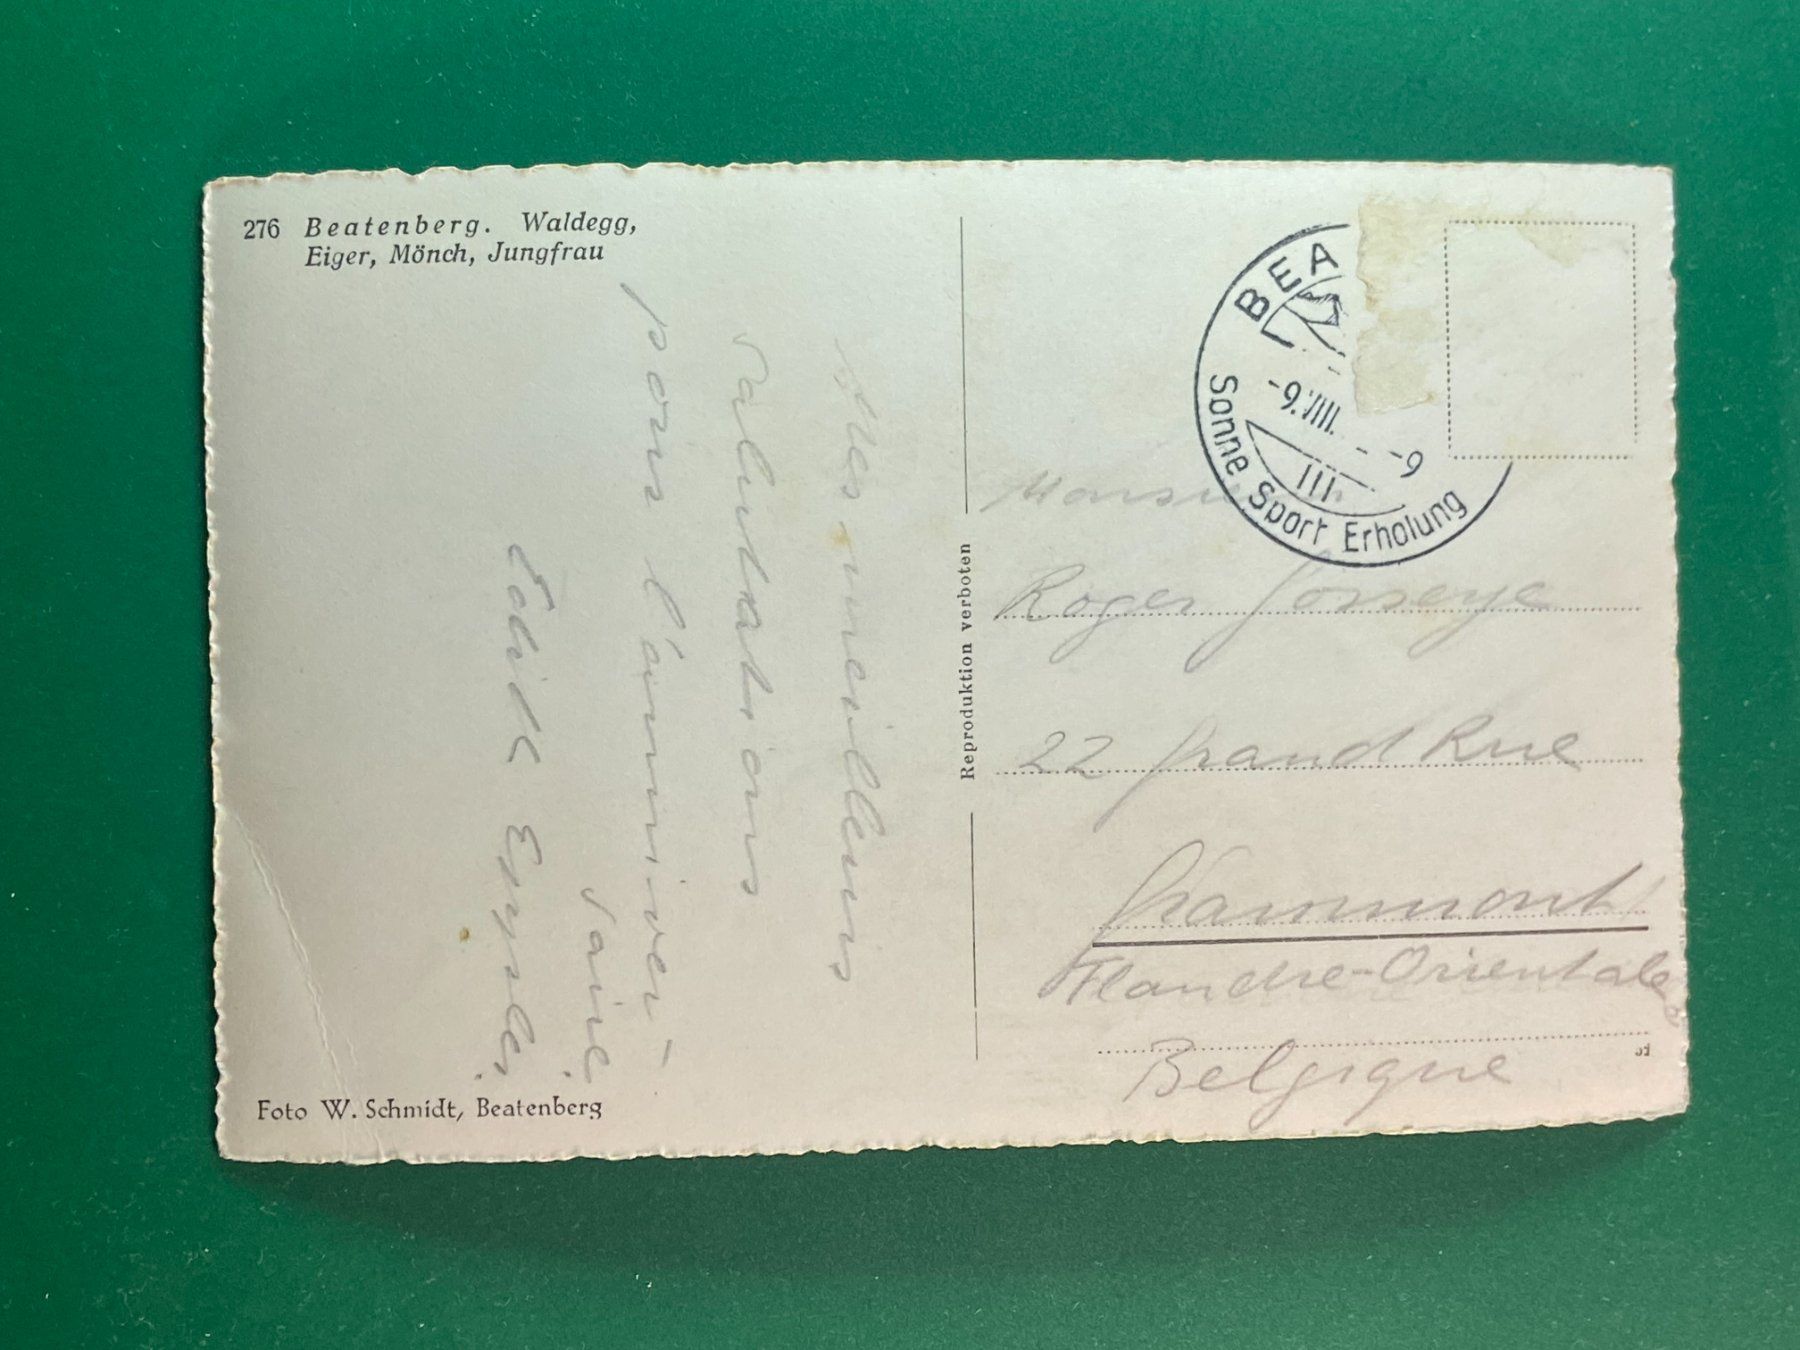 276 Beatenberg. Waldegg,
Eiger, Mönch, Jungfrau
Mes meilleurs
salutations
pour l'anniver-
saire.
Edith
Foto W. Schmidt, Beatenberg
Reproduktion verboten
BEA
-9.VIII. - -6
Sonne Sport Erholung
Monsieur
Roger
22 Grand Rue
Grammont
Flandre-Orientale
Belgique